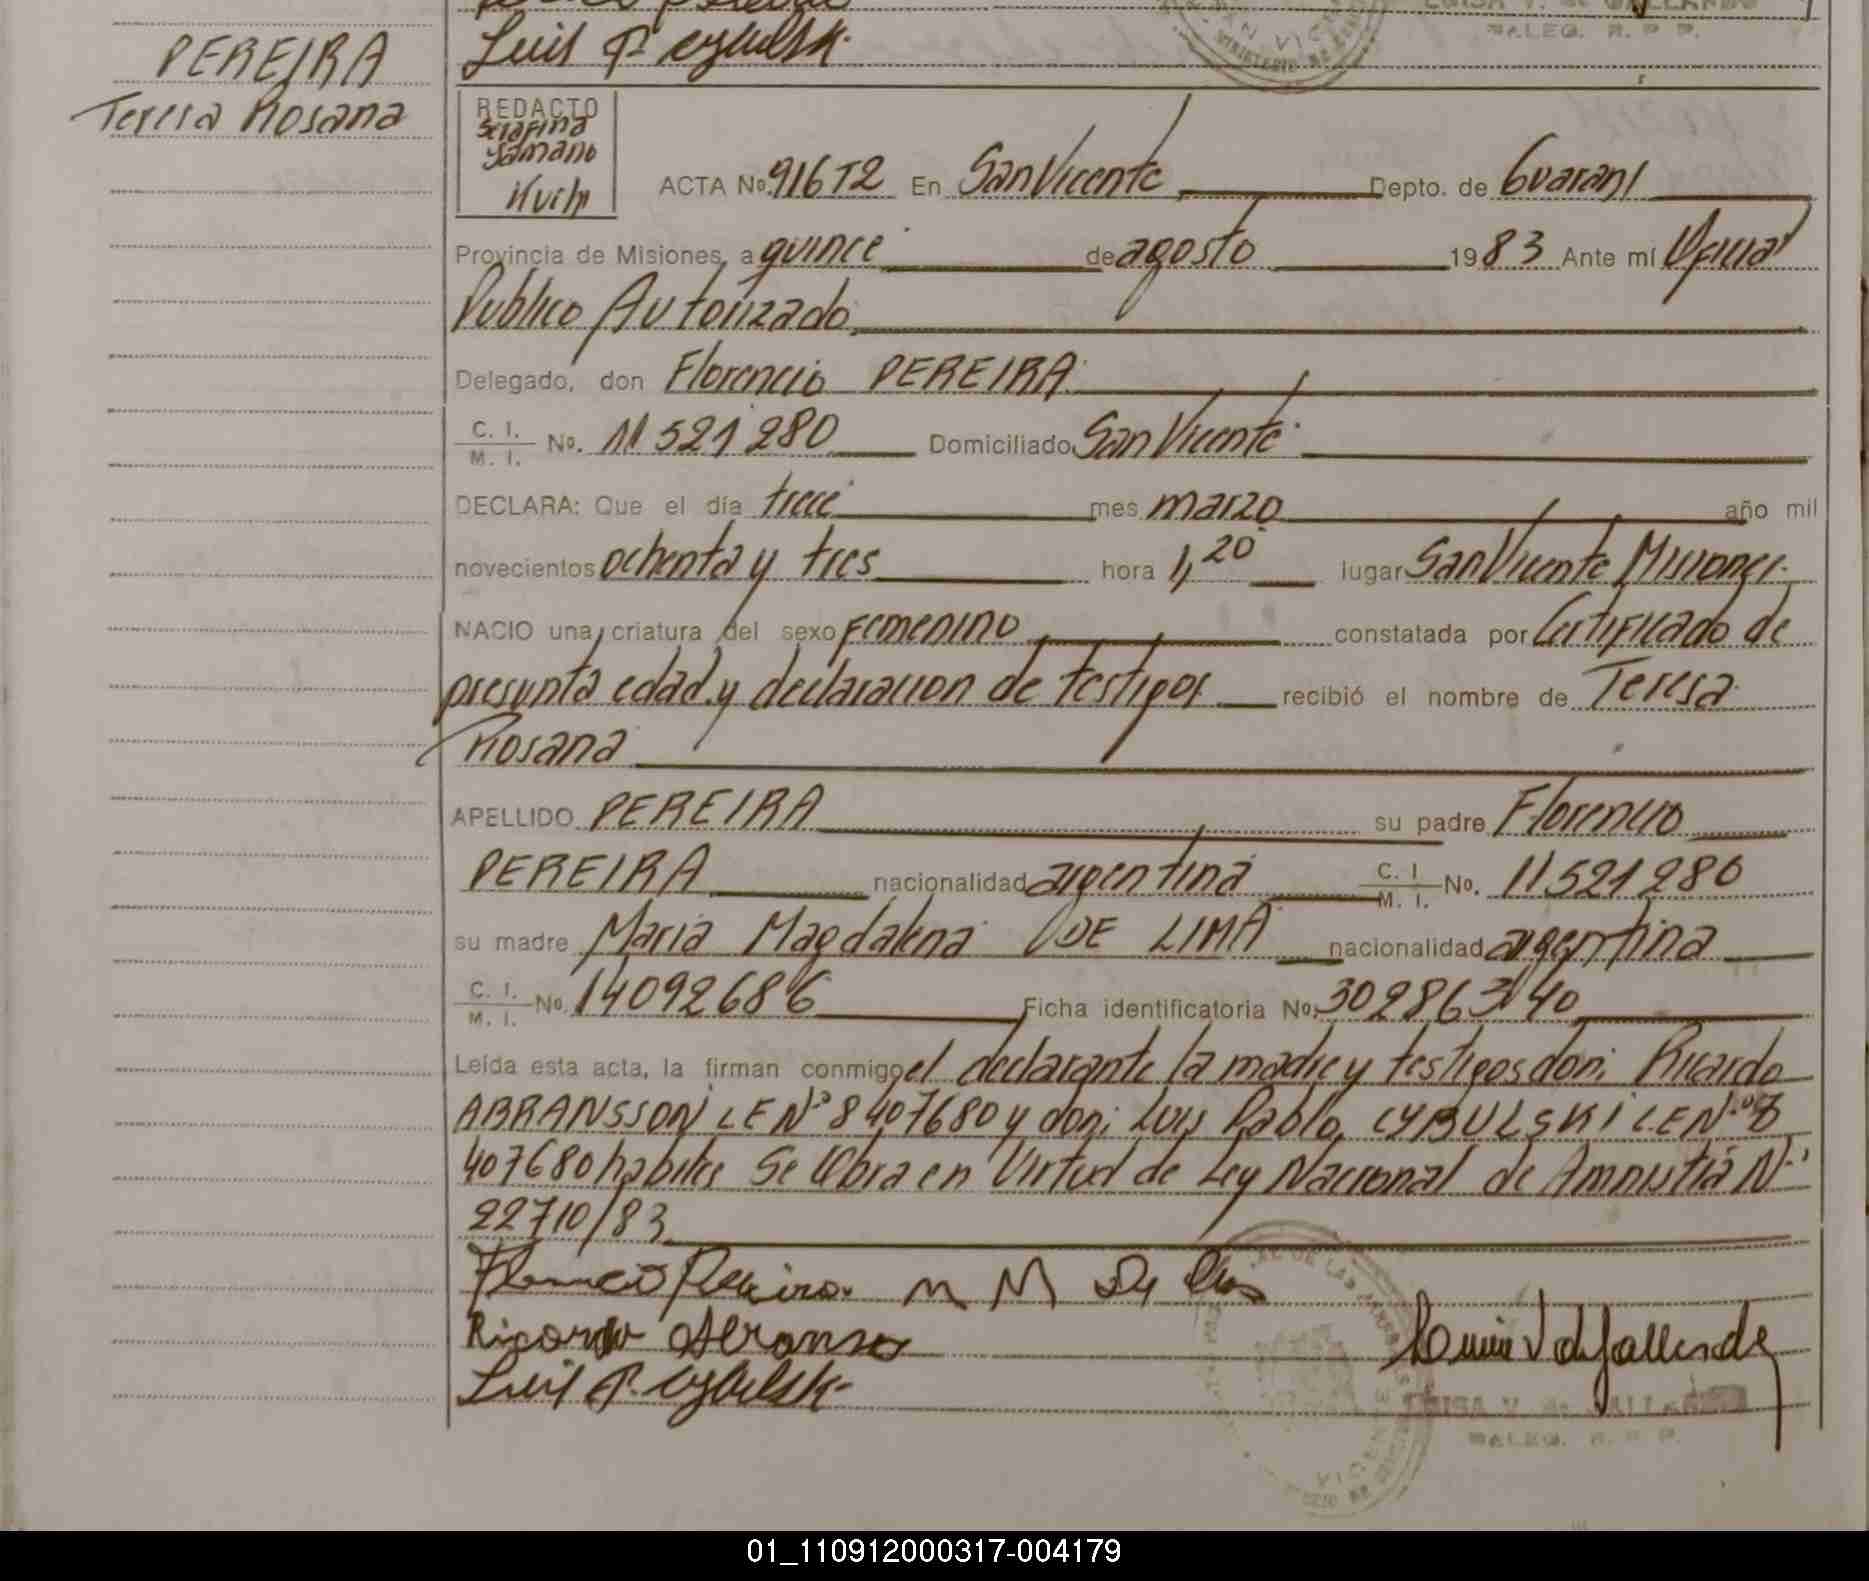 Luis P. Cybulsk.
LUISA V. de GALLARDO
DALEG. R. P. P.
PEREIRA
Teresa Rosana
REDACTO
Serafina
Yamano
ACTA No. 916T2 En San Vicente Depto. de Guarani
Provincia de Misiones, a quince de agosto 1983 Ante mí Oficial
Publico Autorizado
Delegado, don Florencio PEREIRA
C. I.
M. I. No. 11521280 Domiciliado San Vicente
DECLARA: Que el día trece mes marzo año mil
novecientos ochenta y tres hora 1,20 lugar San Vicente Misiones.
NACIO una criatura del sexo femenino constatada por Certificado de
presunta edad y declaracion de testigos recibió el nombre de Teresa
Rosana
APELLIDO PEREIRA su padre Florencio
PEREIRA nacionalidad argentina C. I.
M. I. No. 11521280
su madre Maria Magdalena DE LIMA nacionalidad argentina
C. I.
M. I. No. 14092686 Ficha identificatoria No. 30286340
Leída esta acta, la firman conmigo el declarante la madre y testigos don: Ricardo
ABRANSSON LE Nº 8407680 y don: Luis Pablo CYBULSKI L.E Nº 8
407680 habiles Se Obra en Virtud de Ley Nacional de Amnistia Nº
22710/83
Florencio Pereira. M M De Lima
Ricardo Abranson
Luis P. Cybulsk-
LUISA V. de GALLARDO
DALEG. R. P. P.
01_110912000317-004179